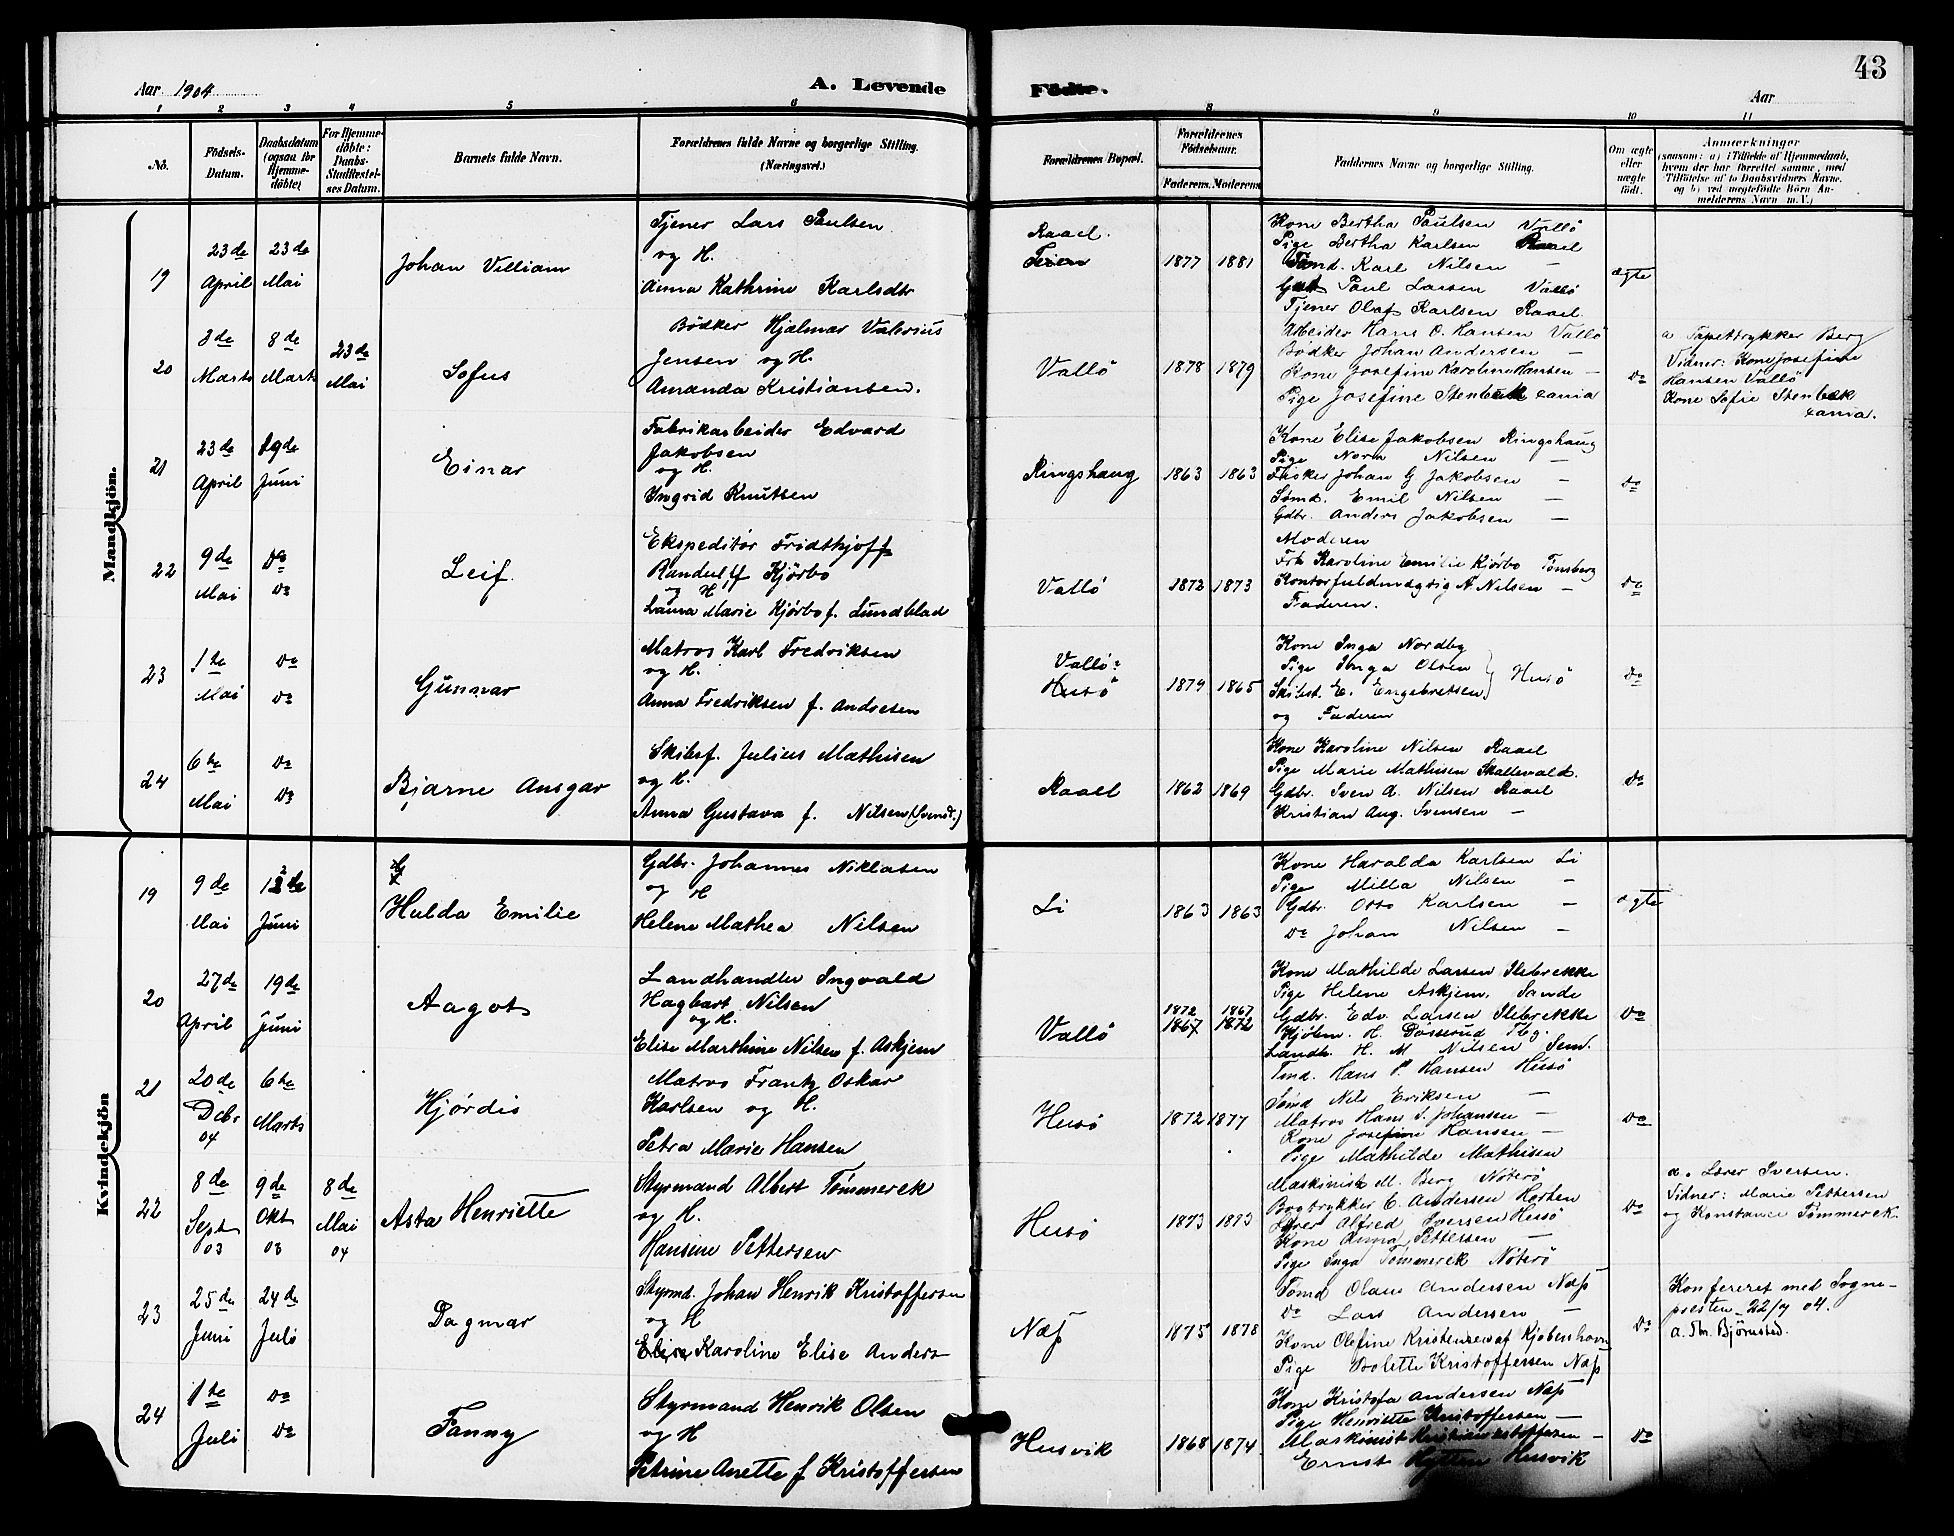 43
Aar 1904
A. Levende
Födte.
Aar
1 2 3 4 5 6 8 9 10 11
No.
Födsels-Datum.
Daabsdatum (ogsaa for Hjemme-döbte)
For Hjemme-döbte: Daabs-Stadfæstel-ses Datum.
Barnets fulde Navn.
Forældrenes fulde Navne og borgerlige Stilling. (Næringsvei.)
Forældrenes Bopæl.
Forældrenes Födselsaar.
Faderens. Moderens
Faddernes Navne og borgerlige Stilling.
Om ægte eller uægte födt.
Anmærkninger
(saasom: a) i Tilfælde af Hjemmedaab,
hvem der har forrettet samme, med
Tilföielse af to Daabsvidners Navne.
og b) ved uægtefödte Börn An-
melderens Navn m. V.)
Mandkjön.
19
23de April
23de Mai
Johan Villiam
Tjener Lars Paulsen
og H.
Anna Kathrine Karlsdtr
Raael.
Teien
1877 1881
Kone Bertha Paulsen Vallö
Pige Bertha Karlsen Raael
Tømd. Karl Nilsen –
Paul Larsen Vallö
Tjener Olaf Karlsen Raael
ægte
20
8de Marts
8de Marts
23de Mai
Sofus
Bödker Hjalmar Valerius
Jensen og H.
Amanda Kristiansen.
Vallö
1878 1879
Arbeider Hans O. Hansen Vallö
Bödker Johan Andersen –
Kone Josefine Karoline Hansen –
Pige Josefine Stenbæk
do
a Tapettrykker Berg
Vidner: Kone Josefine
Hansen Vallö
Kone Sofie Stenbæk
21
23de April
19de Juni
Einar
Fabrikarbeider Edvard
Jakobsen
og H.
Ingrid Knutsen
Ringshaug
1863 1863
Kone Elise Jakobsen Ringshaug
Pige Nora Nilsen –
Fisker Johan G Jakobsen –
Sømd. Emil Nilsen –
Gdbr. Anders Jakobsen –
do
22
9de Mai
do do
Leif.
Ekspeditør Fridthjoff
Randulff Kjörbo
og H
Laura Marie Kjörbo f. Lundblad
Vallö
1872 1873
Moderen
Frk Karoline Emilie Kjörbo Tønsberg
Kontorfuldmægtig A. Nilsen –
Faderen.
do
23
1ste Mai
do do
Gunnar
Matros Karl Fredriksen
og H.
Anna Fredriksen f. Andresen
Vallö:
Husö
1879 1865
Kone Inga Nordby
Pige Inga Olsen
Skibst. E. Engebretsen
og Faderen
Husö
do
24
6te Mai
do do
Bjarne Ansgar
Skibsf. Julius Mathisen
og H.
Anna Gustava f. Nilsen (Svend.)
Raael
1862 1869
Kone Karoline Nilsen Raael
Pige Marie Mathisen Skallevald.
Gdbr. Sven A. Nilsen Raael
Kristian Aug. Svensen –
do
Kvindekjön
19
9de Mai
12de Juni
Hulda Emilie
Gdbr. Johannes Niklasen
og H
Helene Mathea Nilsen
Li
1863 1863
Kone Haralda Karlsen Li
Pige Milla Nilsen –
Gdbr. Otto Karlsen –
do Johan Nilsen –
ægte
20
27de April
19de Juni
Aagot
Landhandler Ingvald
Hagbart Nilsen
og H.
Elise Marthine Nilsen f. Askjem
Vallö
1872 1867
1867 1872
Kone Mathilde Larsen Slebrekke
Pige Helene Askjem, Sande
Gdbr. Edv. Larsen Slebrekke
Kjöbm. H. Døsserud Tbg.
Landh. H. M Nilsen Sem.
do
21
20de Dcbr 04
6te Marts
Hjördis
Matros Frantz Oskar
Karlsen og H.
Petra Marie Hansen
Husö
1872 1877
Tmd. Hans P. Hansen Husö
Sømd Nils Eriksen –
Matros Hans S. Johansen –
Kone Josefine Hansen –
Pige Mathilde Mathisen
do
22
8de Sept 03
9de Okt 03
8de Mai 04
Asta Henriette
Styrmand Albert Tömmerek
og H.
Hansine Pettersen
Husö
1873 1873
Maskinist M. Berg Nöterö
Bogtrykker C. Andersen Horten
Lærer Alfred Iversen Husö
Kone Anna Pettersen –
Pige Inga Tömmerek Nöterö
do
a. Lærer Iversen.
Vidner: Marie Pettersen
og Konstance Tömmerek.
23
25de Juni
24de Juli
Dagmar
Styrmd. Johan Henrik Kristoffersen
og H
Elise Karoline Elise Anders
Næs
1875 1878
Tömd Olaus Andersen Næs
do Lars Andersen –
Kone Olefine Kristensen af Kjøbenhavn
Pige Bolette Kristoffersen Næs
do
Konfereret med Sogne-
presten 22/7 04.
a. Th. Bjørnsted.
24
1ste Juli
do do
Fanny
Styrmand Henrik Olsen
og H
Petrine Anette f Kristoffersen
Husvik
1868 1874
Kone Kristofa Andersen Næs
Pige Henriette Kristoffersen –
Maskinist Kristian Kristoffersen –
Ernst Hytten Husvik
do